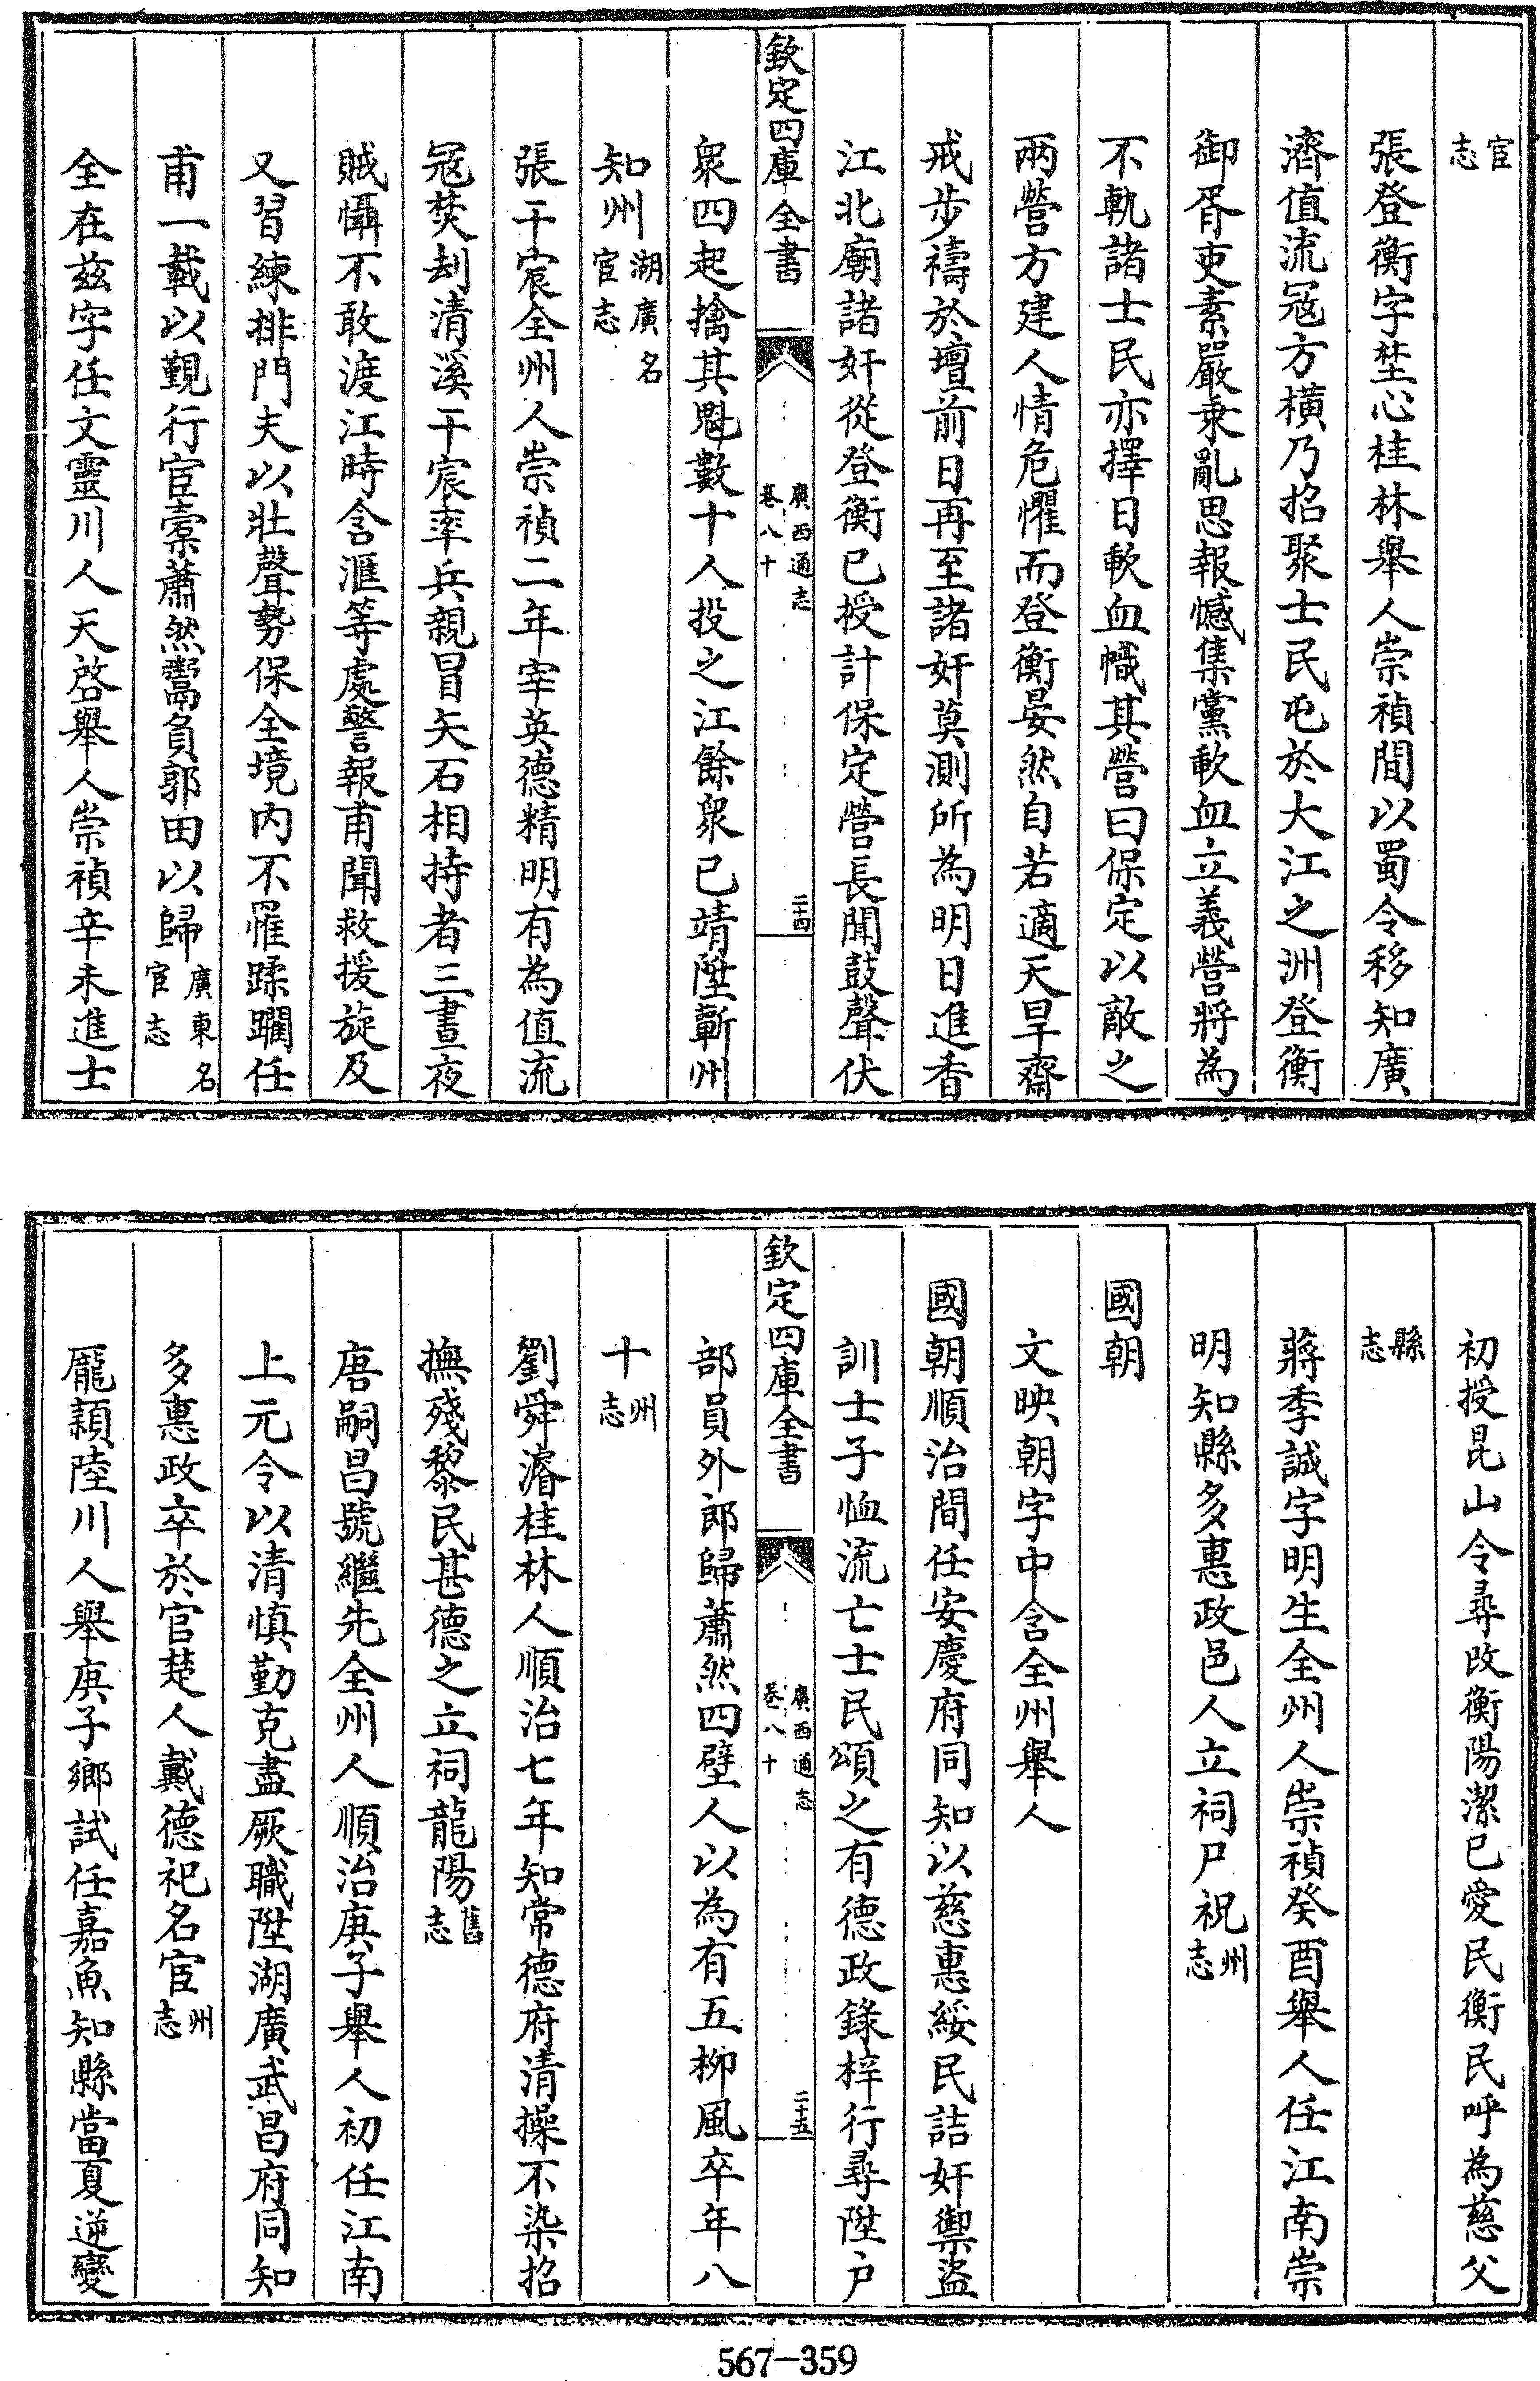 宦志
張登衡字埜心桂林舉人崇禎間以蜀令移知廣
濟值流冦方橫乃招聚士民屯於大江之洲登衡
御胥吏素嚴乗亂思報憾集黨軟血立義營將為
不軌諸士民亦擇日軟血幟其營曰保定以敵之
兩營方建人情危懼而登衡晏然自若適天旱齋
戒步禱於壇前日再至諸奸莫測所為明日進香
江北廟諸奸從登衡已授計保定營長聞鼓聲伏
欽定四庫全書
廣西通志
卷八十
二十四
衆四起擒其魁數十人投之江餘衆已靖陞蘄州
知州湖廣名宦志
張干宸全州人崇禎二年宰英德精明有為值流
冦焚刦清溪干宸率兵親冒矢石相持者三晝夜
賊懾不敢渡江時含滙等處警報甫聞救援旋及
又習練排門夫以壯聲勢保全境内不罹蹂躪任
甫一載以覲行宦橐蕭然鬻負郭田以歸廣東名宦志
全在兹字任文靈川人天啓舉人崇禎辛未進士
初授昆山令尋改衡陽潔已愛民衡民呼為慈父
縣志
蔣季誠字明生全州人崇禎癸酉舉人任江南崇
明知縣多惠政邑人立祠尸祝州志
國朝
文映朝字中含全州舉人
國朝順治間任安慶府同知以慈惠綏民詰奸禦盜
訓士子恤流亡士民頌之有德政錄梓行尋陞户
欽定四庫全書
廣西通志
卷八十
二十五
部員外郎歸蕭然四壁人以為有五柳風卒年八
十州志
劉舜濬桂林人順治七年知常德府清操不染招
撫殘黎民甚德之立祠龍陽舊志
唐嗣昌號繼先全州人順治庚子舉人初任江南
上元令以清慎勤克盡厥職陞湖廣武昌府同知
多惠政卒於官楚人戴德祀名宦州志
龐頴陸川人舉庚子鄉試任嘉魚知縣當夏逆變
567-359